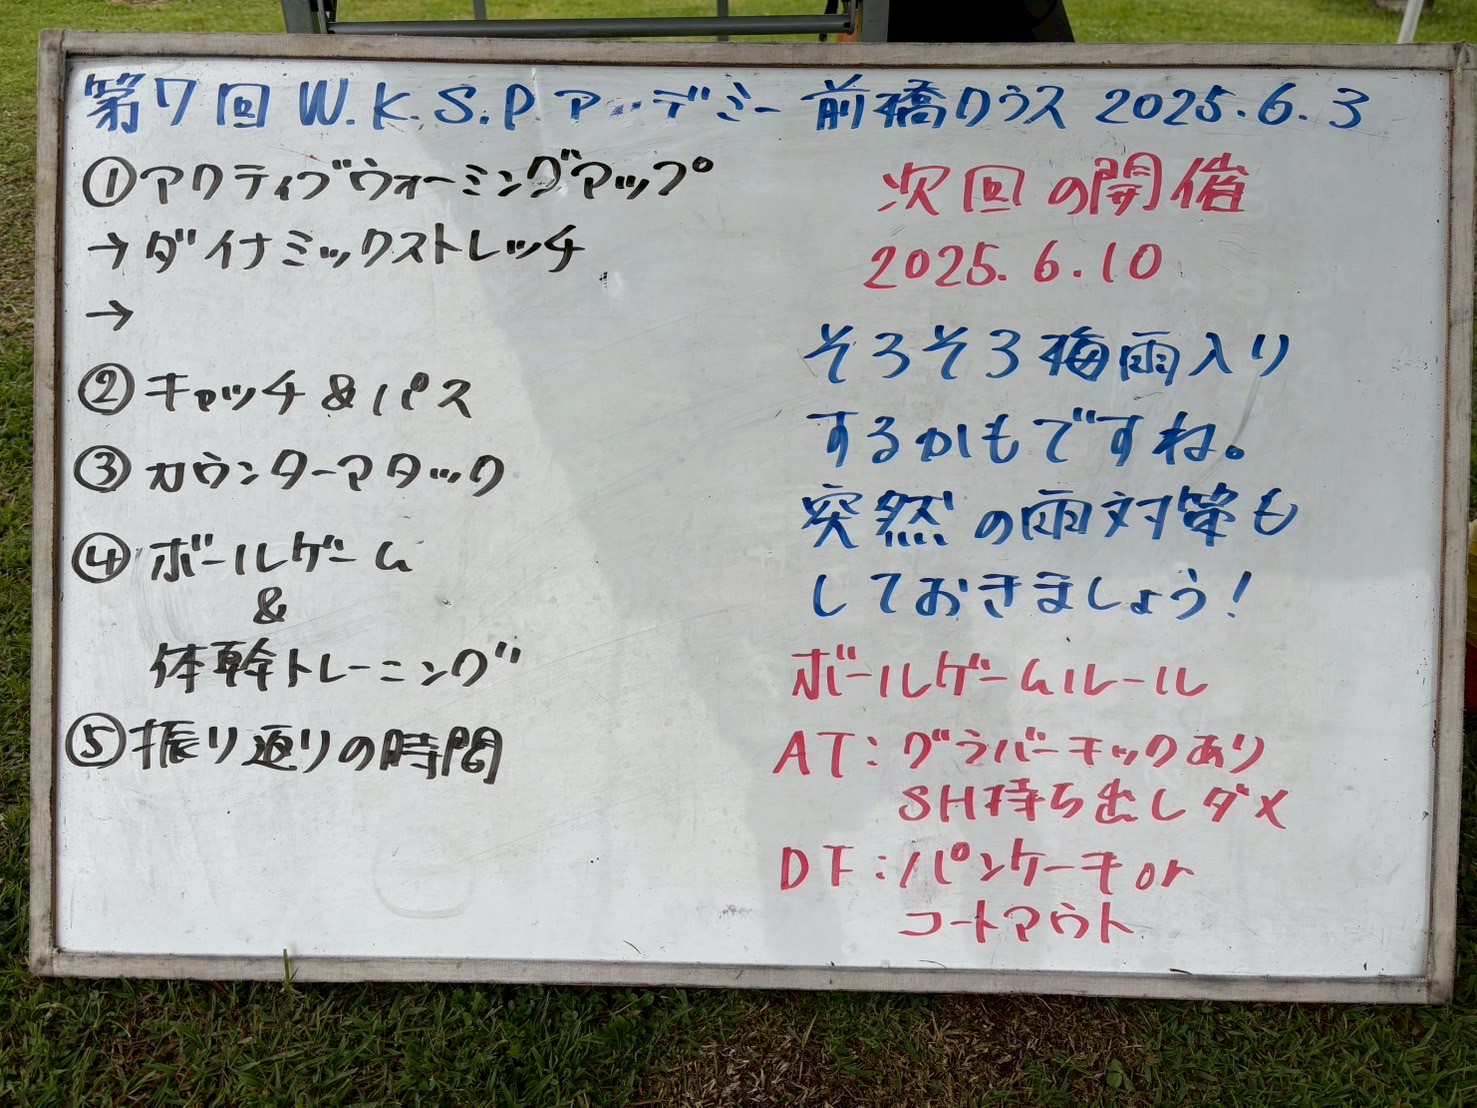 第7回 W.K.S.P.アカデミー 前橋クラス 2025.6.3
①アクティブウォーミングアップ
→ダイナミックストレッチ
→
②キャッチ&パス
③カウンターアタック
④ボールゲーム
&
体幹トレーニング
⑤振り返りの時間
次回の開催
2025.6.10
そろそろ梅雨入り
するかもですね。
突然の雨対策も
しておきましょう!
ボールゲームルール
AT:グラバーキックあり
SH持ち出しダメ
DF:パンケーキor
コートアウト